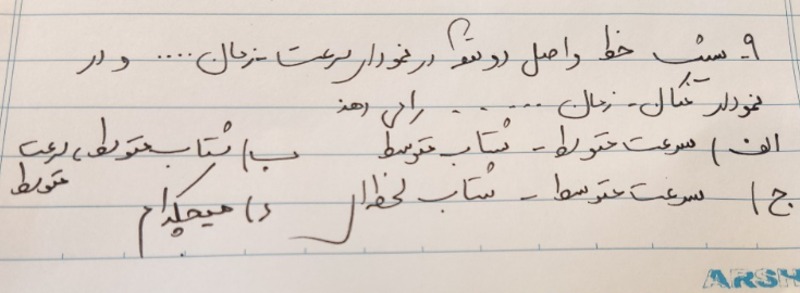 ۹- شیب خط واصل دو نقطه در نمودار سرعت - زمان .... و در
نمودار مکان - زمان ........ را می دهد
الف) سرعت متوسط - شتاب متوسط ب) شتاب متوسط، سرعت متوسط
ج) سرعت متوسط - شتاب لحظه ای د) هیچکدام
ARSH